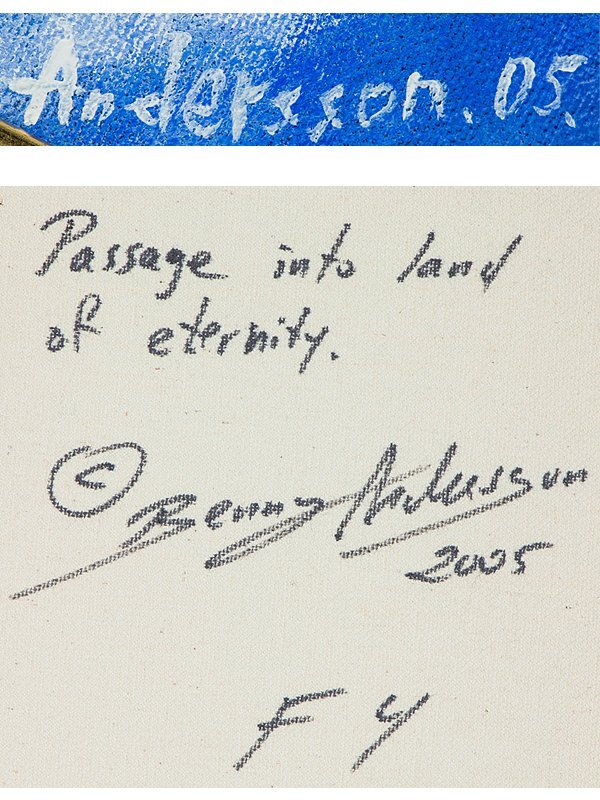 Andersson. 05.
Passage into land
of eternity.
© Benny Andersson
2005
F 4